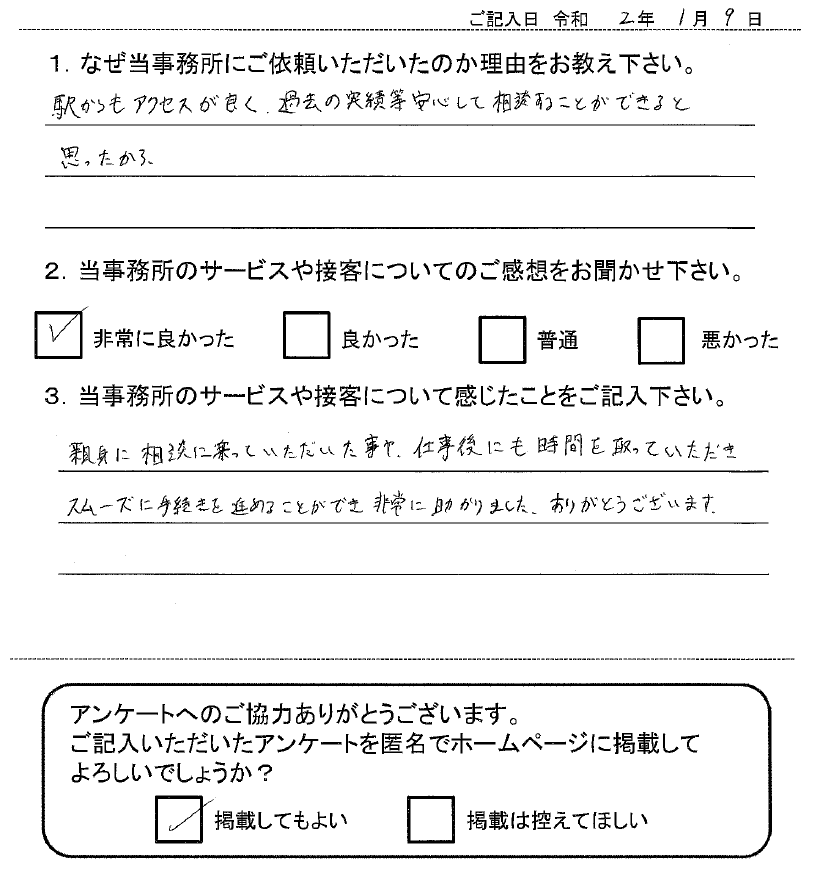 ご記入日 令和 2年 1月 9日
1. なぜ当事務所にご依頼いただいたのか理由をお教え下さい。
駅からもアクセスが良く、過去の実績等安心して相談することができると
思ったから、
2. 当事務所のサービスや接客についてのご感想をお聞かせ下さい。
非常に良かった 良かった 普通 悪かった
3. 当事務所のサービスや接客について感じたことをご記入下さい。
親身に相談に乗っていただいた事や、仕事後にも時間を取っていただき
スムーズに手続きを進めることができ非常に助かりました、ありがとうございます。
アンケートへのご協力ありがとうございます。
ご記入いただいたアンケートを匿名でホームページに掲載して
よろしいでしょうか？
掲載してもよい 掲載は控えてほしい